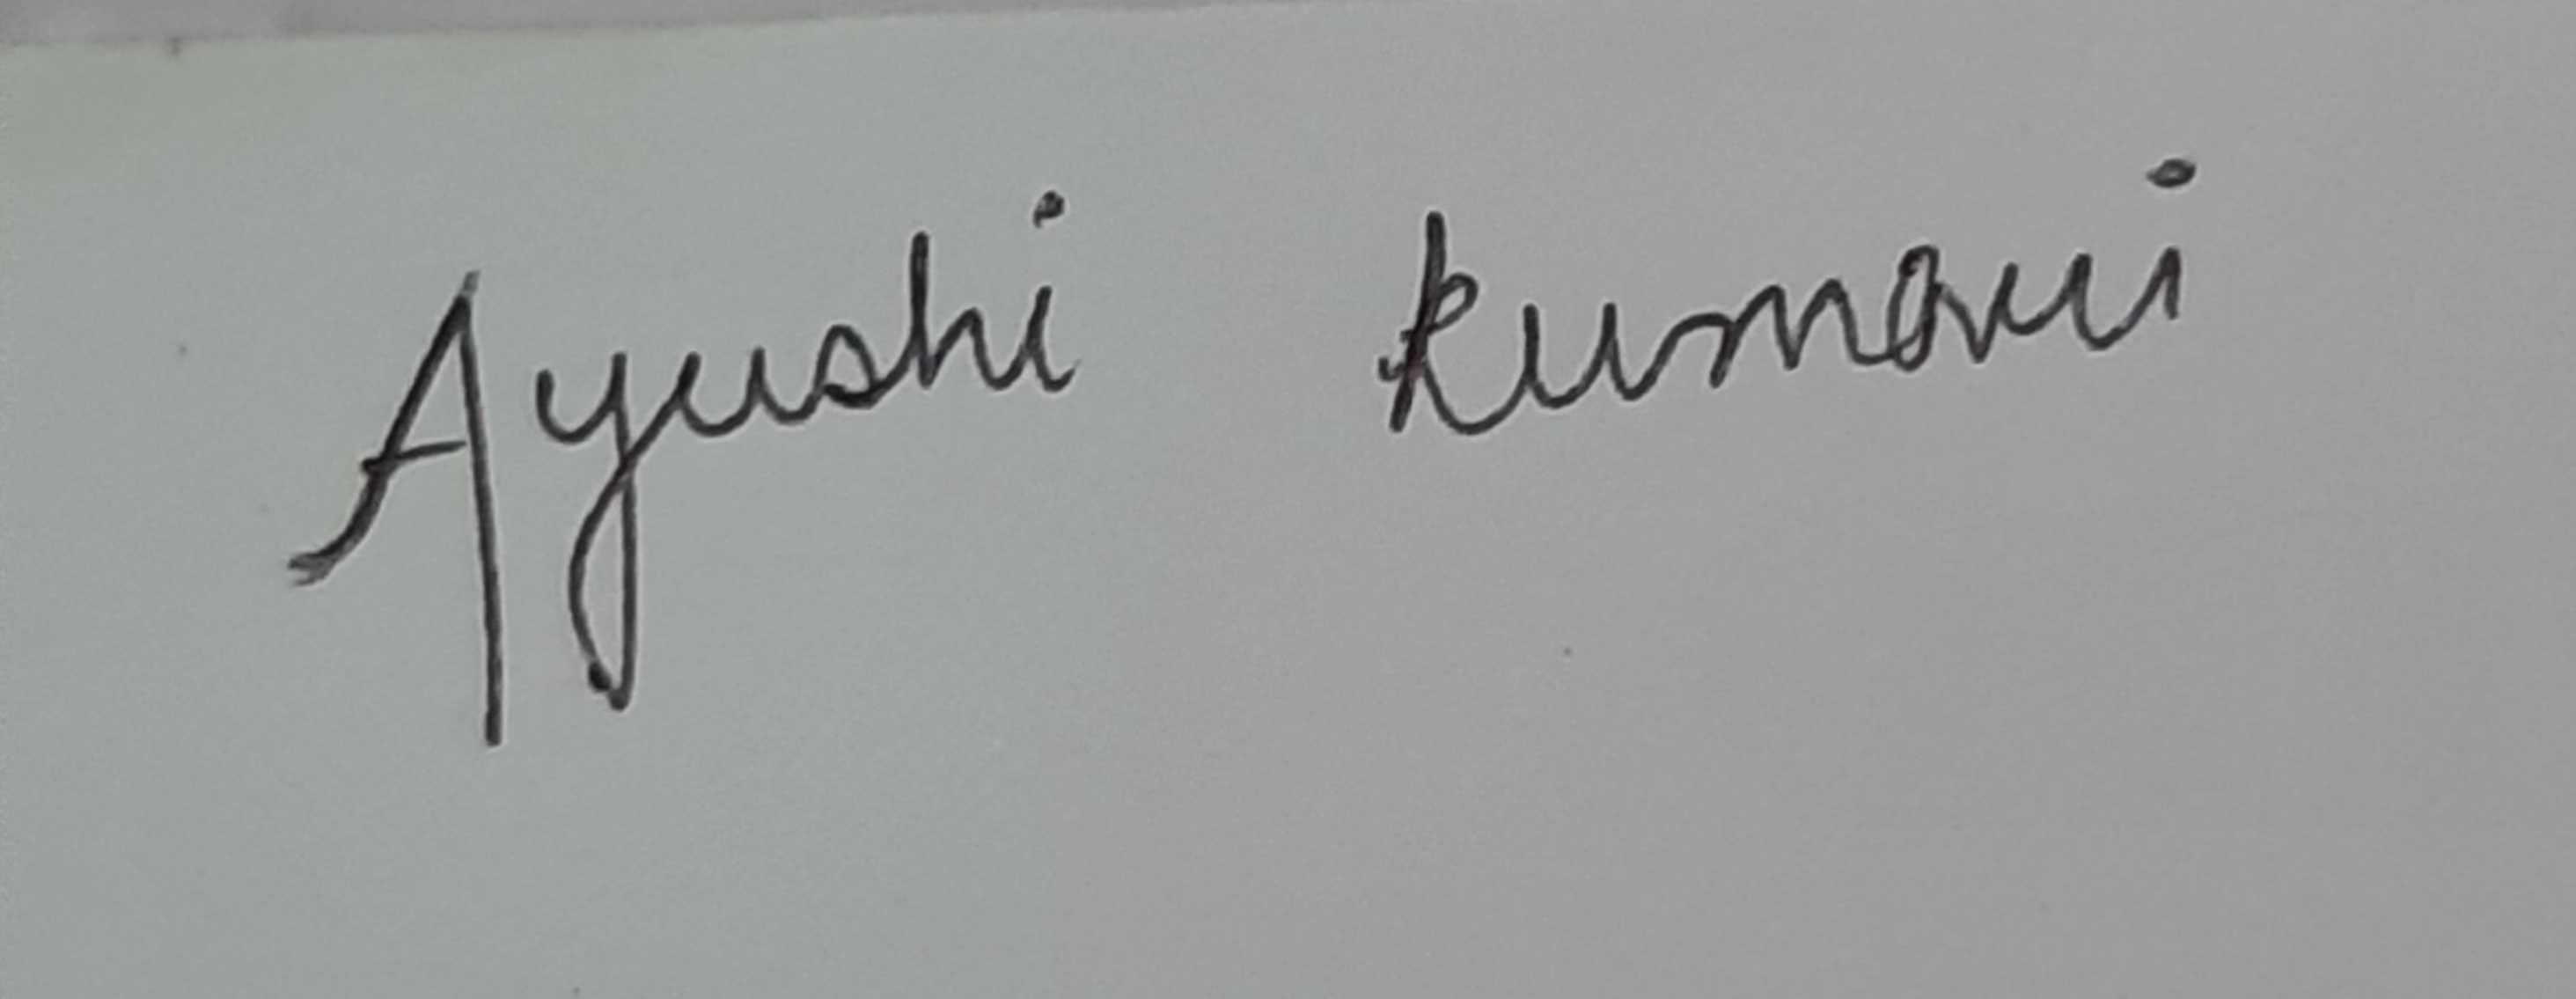 Ayushi kumari